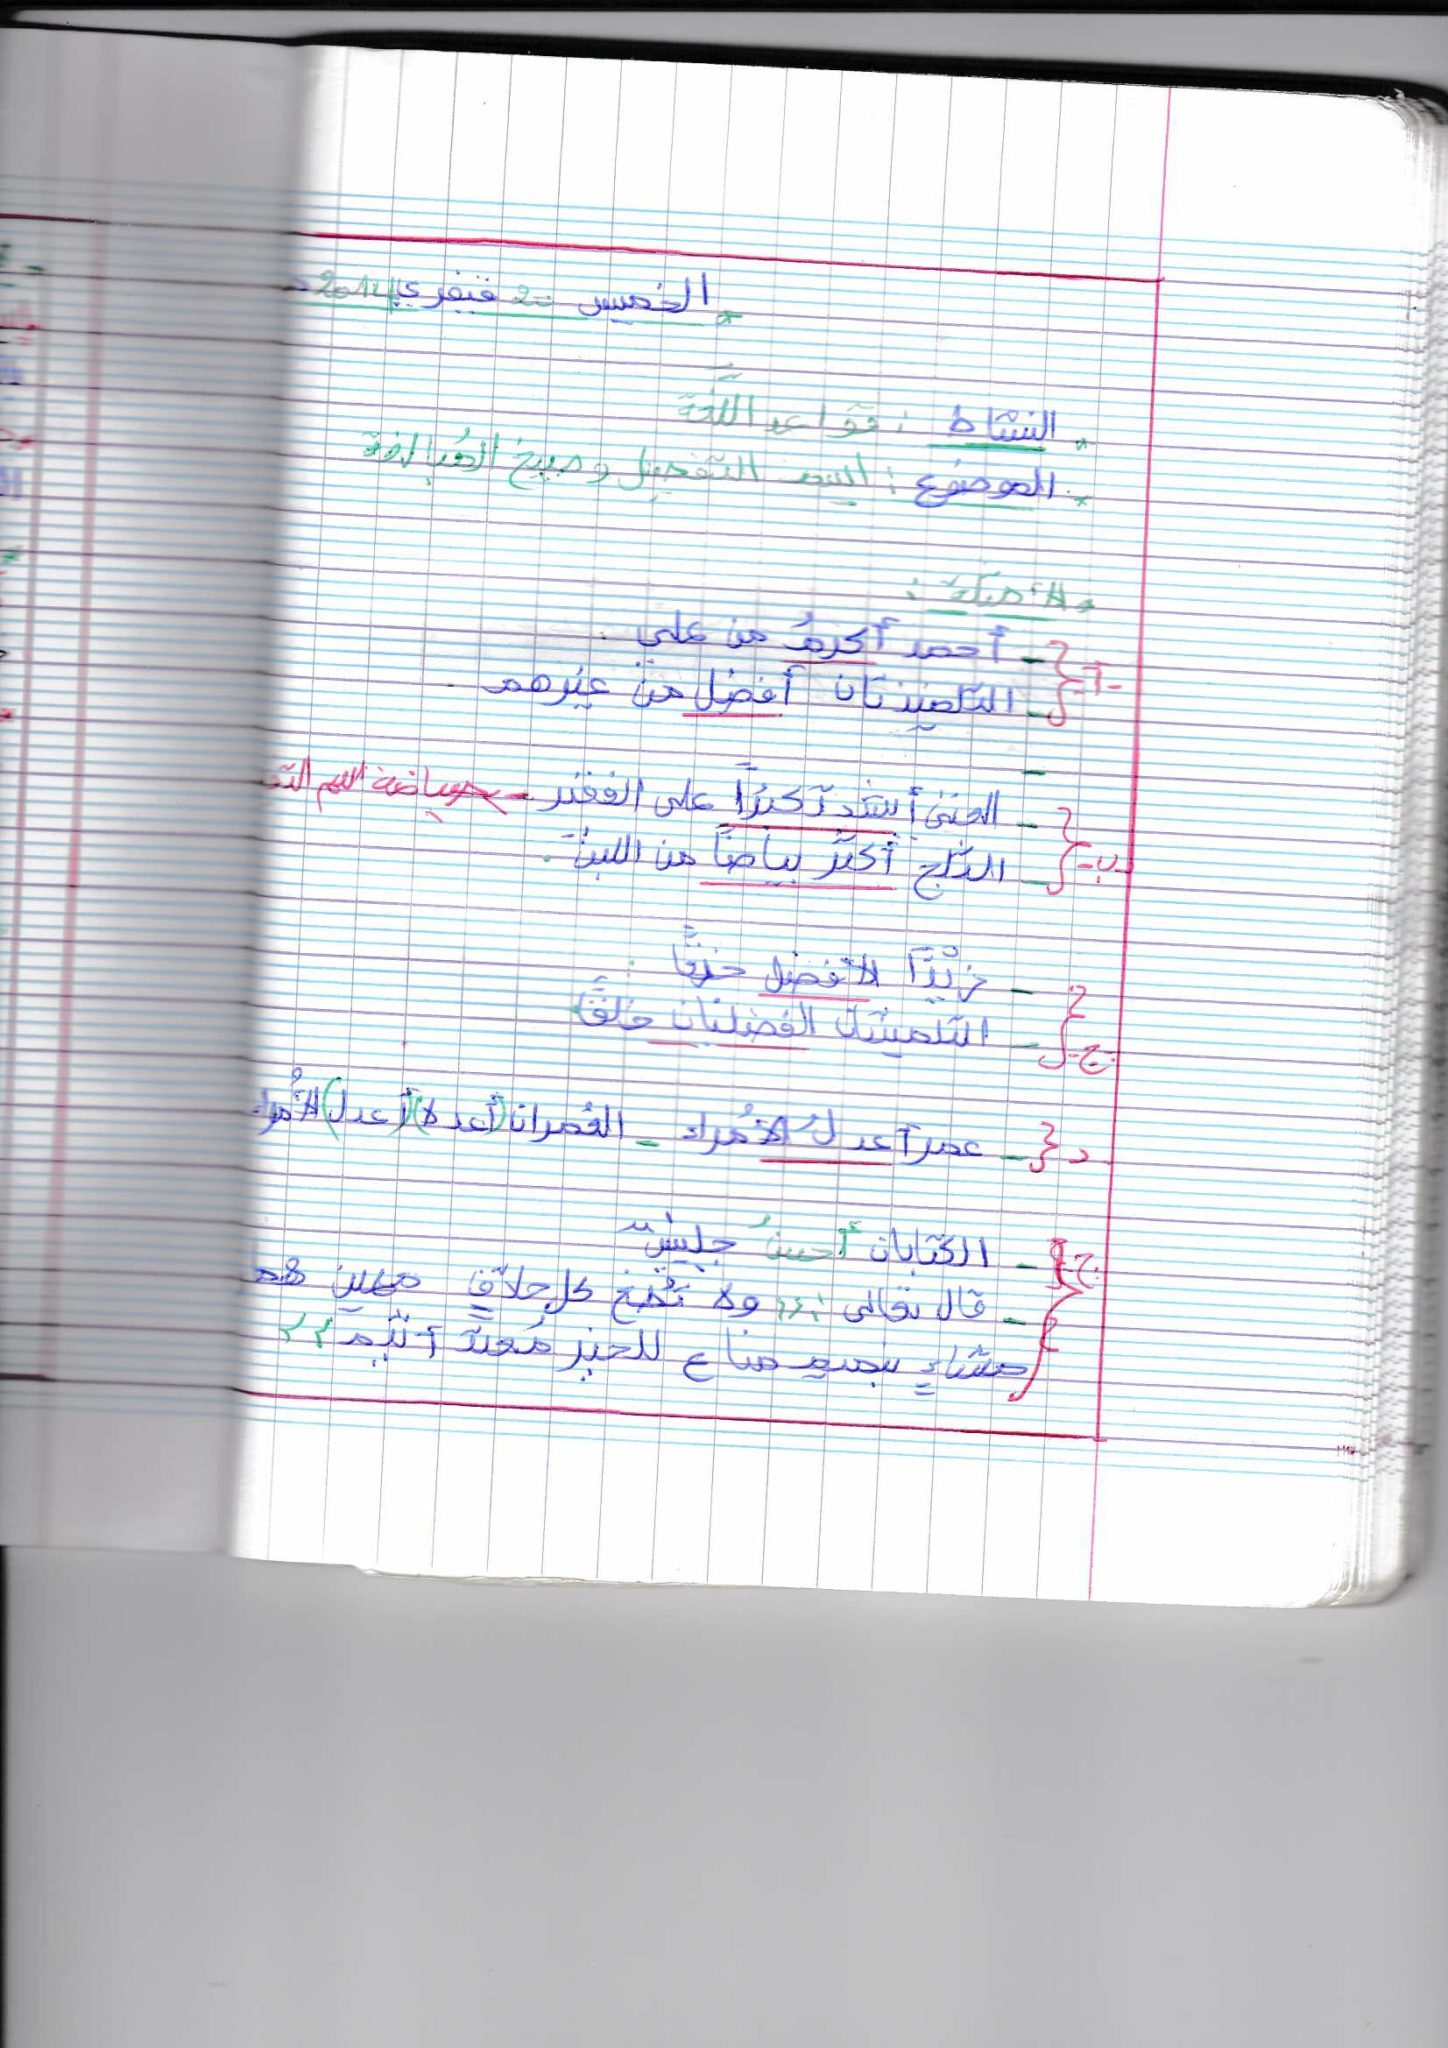 * الخميس 20 فيفري 2014
* النشاط : قواعد اللّغة
* الموضوع : اسم التفضيل وصيغ المبالغة
* الأمثلة :
أ - أحمد أكرمُ من علي .
- التلميذتان أفضل من غيرهم .
ب - الغنيّ أشد تكبرًا على الفقير - صياغة اسم
- الثلج أكثر بياضًا من اللبن .
ج - الأفضل خلقًا .
- الفضليان خلقًا
د - عمر أعدلُ الأمراء - العمران (أعدلا) (أعدل) الأمراء
- الكتابان أحسنُ جليس
- قال تعالى : ولا تُطع كل حلافٍ مهين
مشاءٍ بنميم مناع للخير مُعتد أثيم